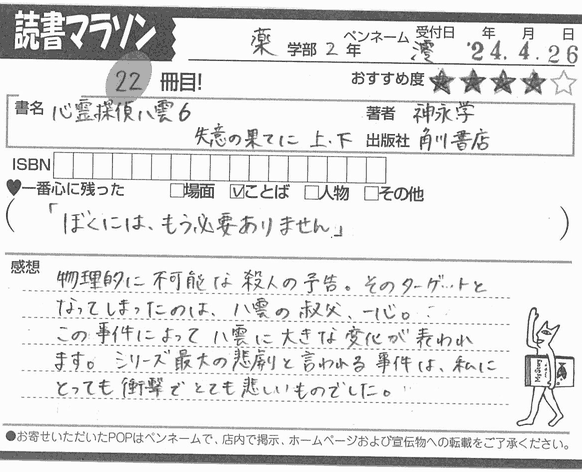 読書マラソン
薬 学部 2 年 ペンネーム 澪 受付日 '24年.4月.26日
22 冊目! おすすめ度 ★★★★☆
書名 心霊探偵八雲6 著者 神永学
失意の果てに 上・下 出版社 角川書店
ISBN
♥一番心に残った □場面 ☑ことば □人物 □その他
(「ぼくには、もう必要ありません」)
感想 物理的に不可能な殺人の予告。そのターゲットと
なってしまったのは、八雲の叔父、一心。
この事件によって八雲に大きな変化が表われ
ます。シリーズ最大の悲劇と言われる事件は、私に
とっても衝撃でとても悲しいものでした。
●お寄せいただいたPOPはペンネームで、店内で掲示、ホームページおよび宣伝物への転載をご了承ください。